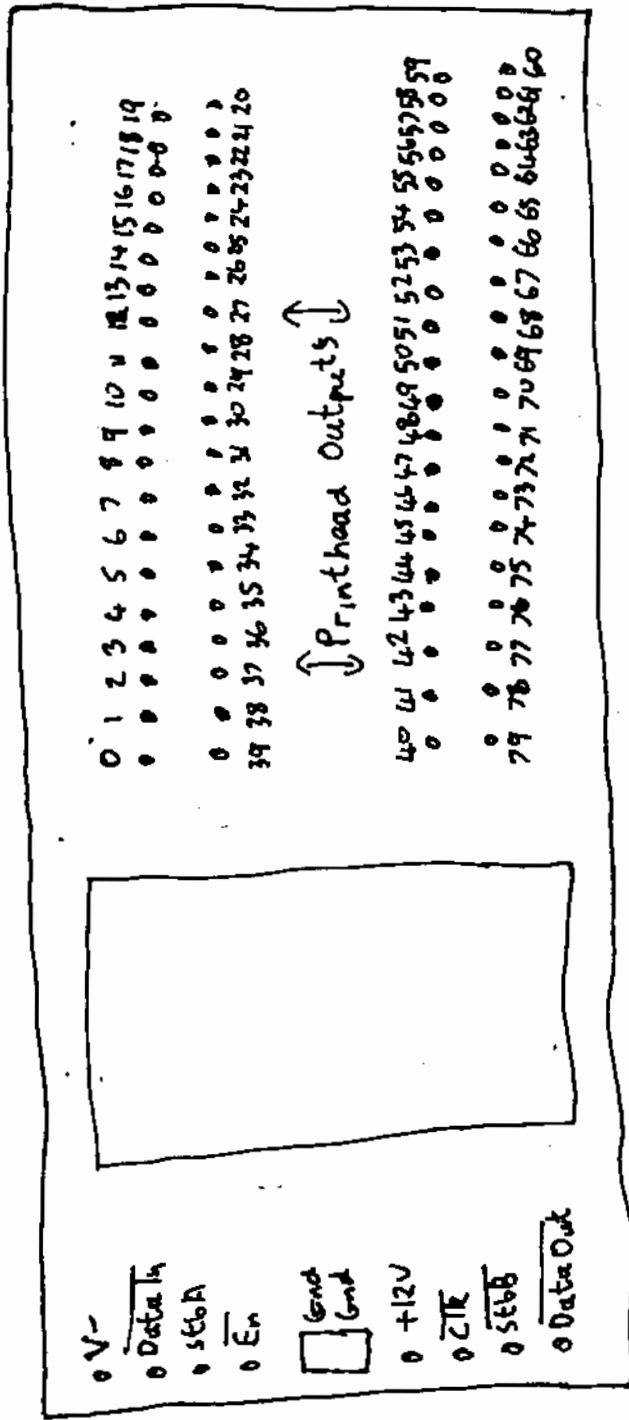 V-
D̅a̅t̅a̅ ̅I̅n̅
StbA
E̅n̅
Gnd
Gnd
+12V
C̅l̅k̅
S̅t̅b̅B̅
D̅a̅t̅a̅ ̅O̅u̅t̅
0 1 2 3 4 5 6 7 8 9 10 11 12 13 14 15 16 17 18 19
39 38 37 36 35 34 33 32 31 30 29 28 27 26 25 24 23 22 21 20
Printhead Outputs
40 41 42 43 44 45 46 47 48 49 50 51 52 53 54 55 56 57 58 59
79 78 77 76 75 74 73 72 71 70 69 68 67 66 65 64 63 62 61 60